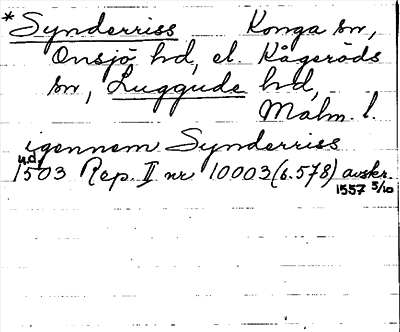 * Synderriss Konga sn,
Onsjö hd, el. Kågeröds
sn, Luggude hd,
Malm. l.
igennem Synderriss
u.d.
1503 Rep. II nr 10003 (s. 578) avskr.
1557 5/10